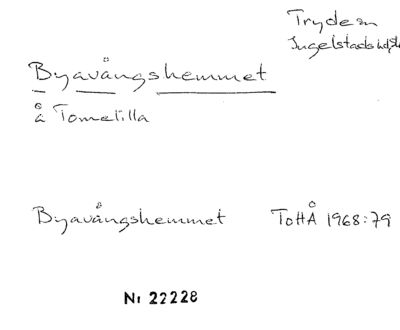 Tryde sn
Ingelstads hd, Sk
Byavångshemmet
å Tomelilla
Byavångshemmet ToHÅ 1968:79
Nr 22228